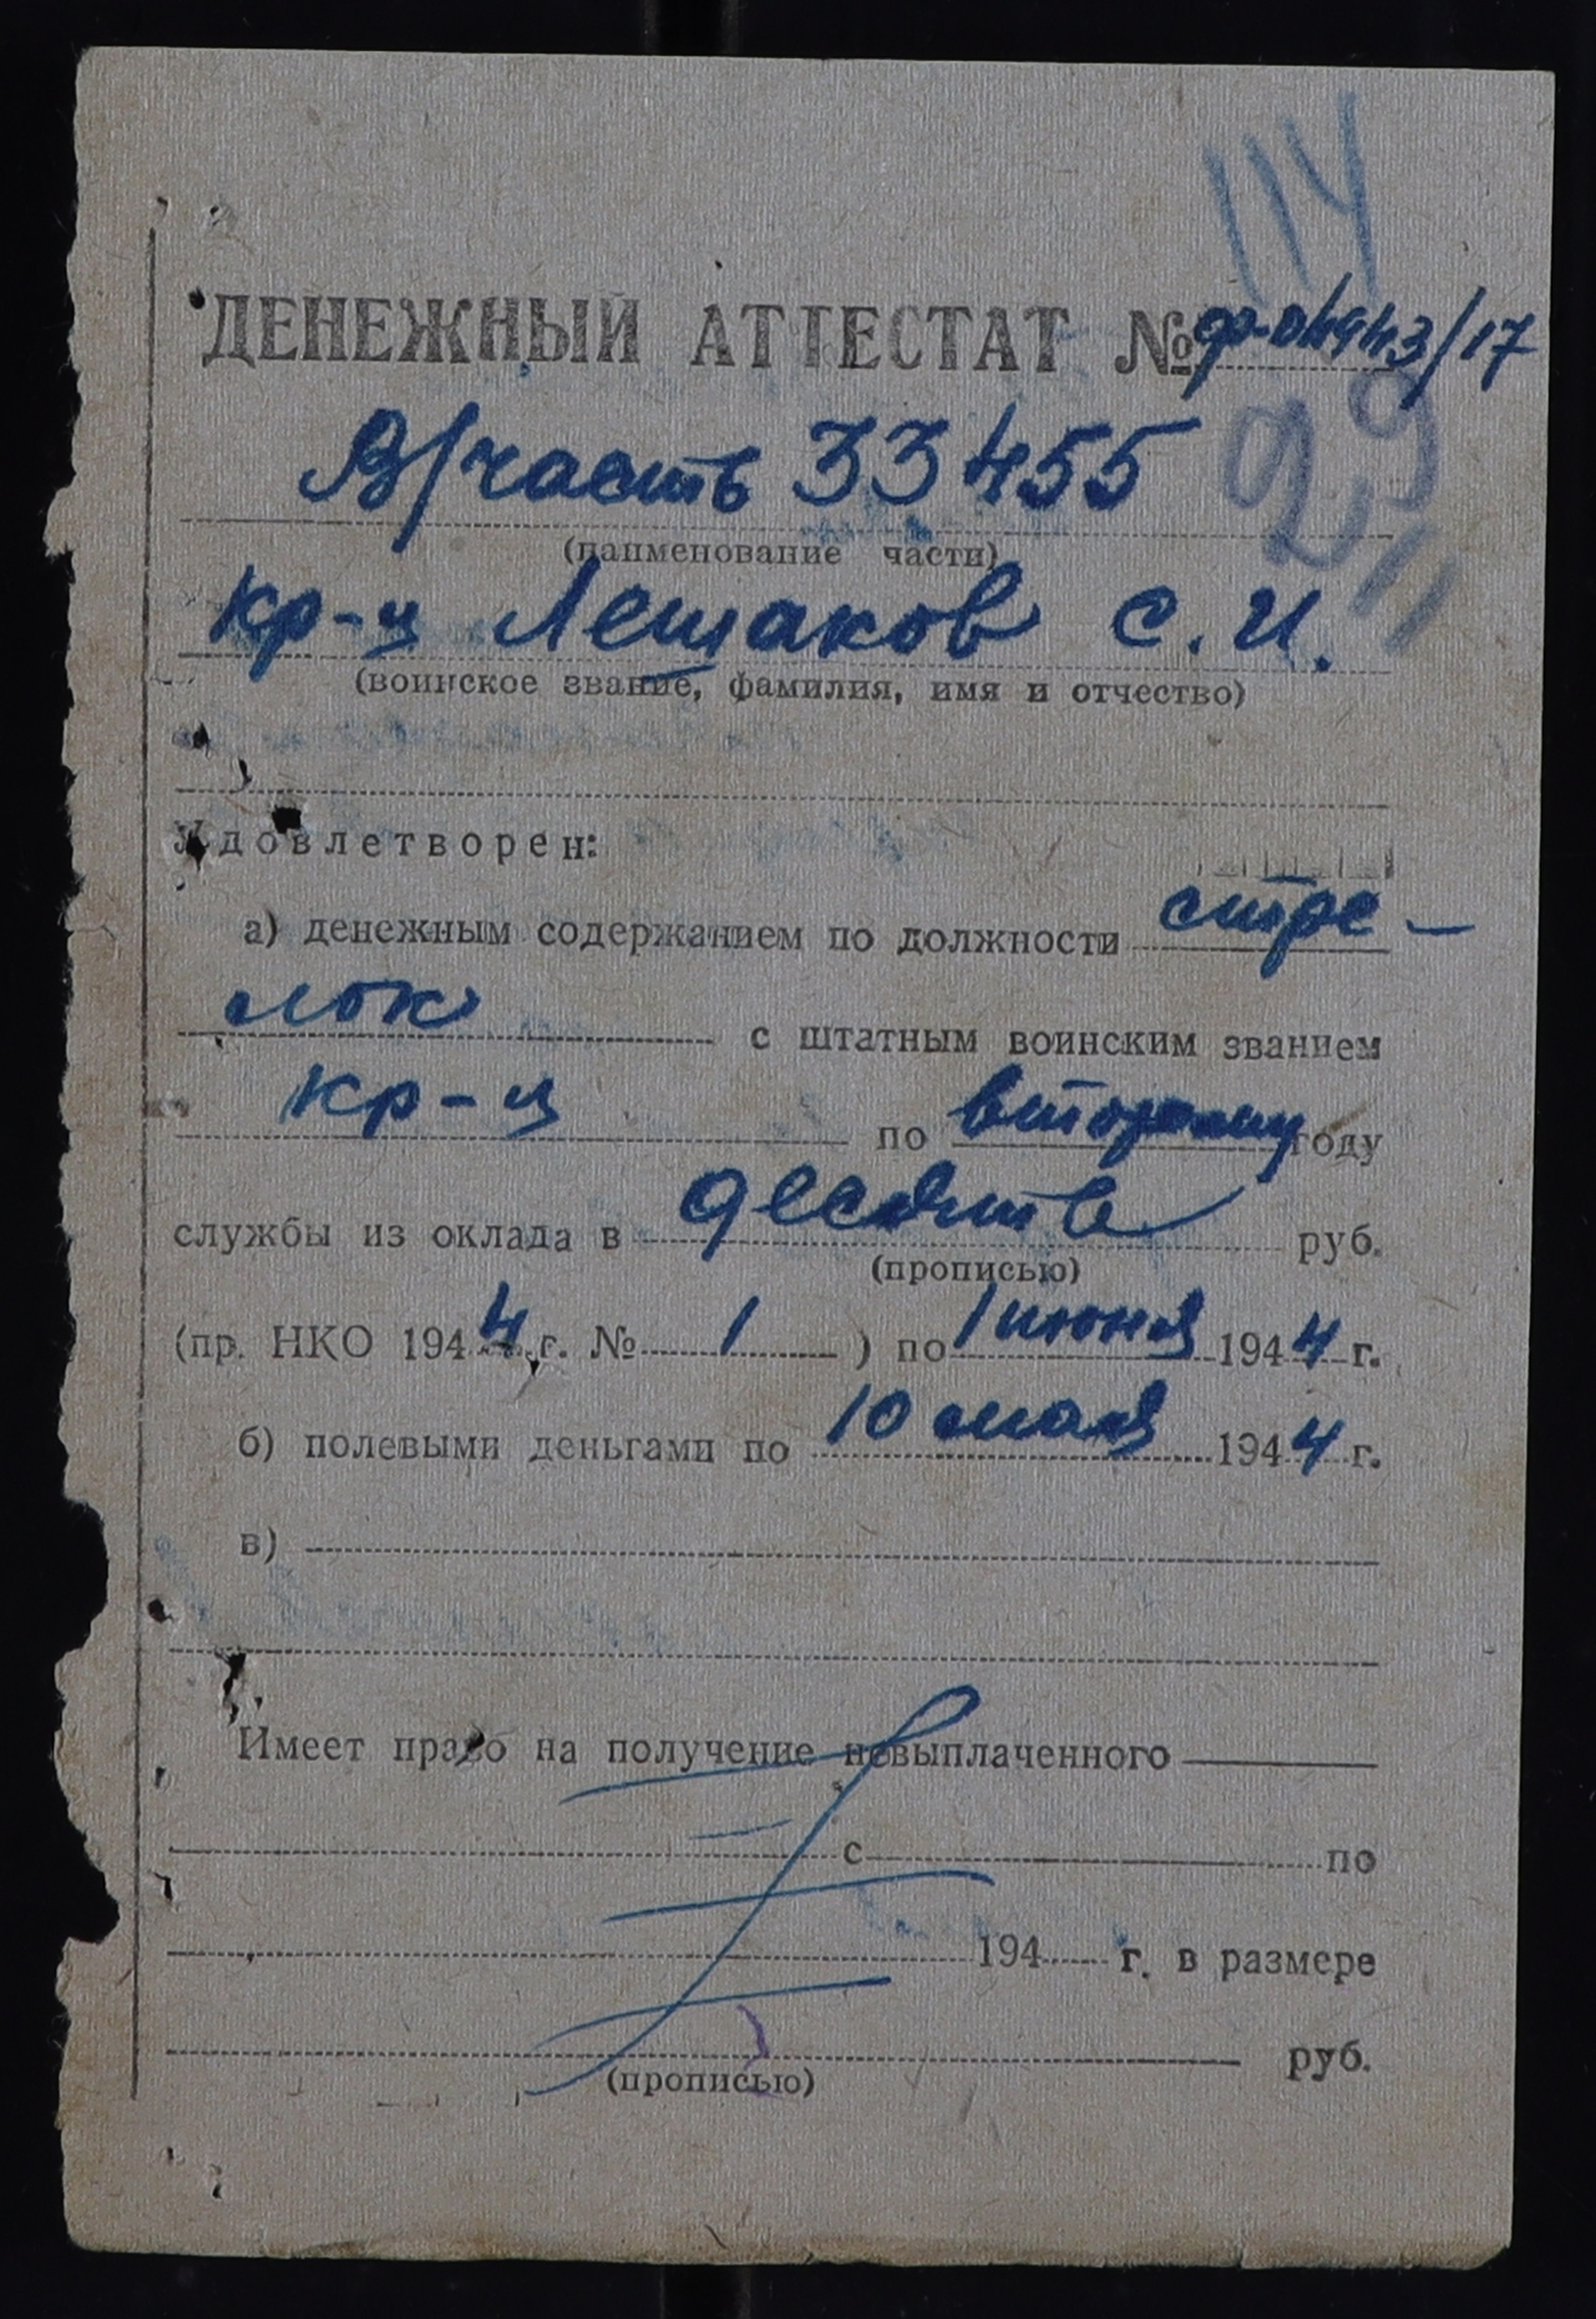 114
ДЕНЕЖНЫЙ АТТЕСТАТ № ф-04943/17
В/часть 33455
29
(наименование части)
кр-ц Лешаков С. И.
(воинское звание, фамилия, имя и отчество)
Удовлетворен:
а) денежным содержанием по должности стре-
лок с штатным воинским званием
кр-ц по второму году
службы из оклада в десять руб.
(прописью)
(пр. НКО 1944 г. № 1 ) по 1 июня 1944 г.
б) полевыми деньгами по 10 мая 1944 г.
в)
Имеет право на получение невыплаченного
с по
194 г. в размере
руб.
(прописью)